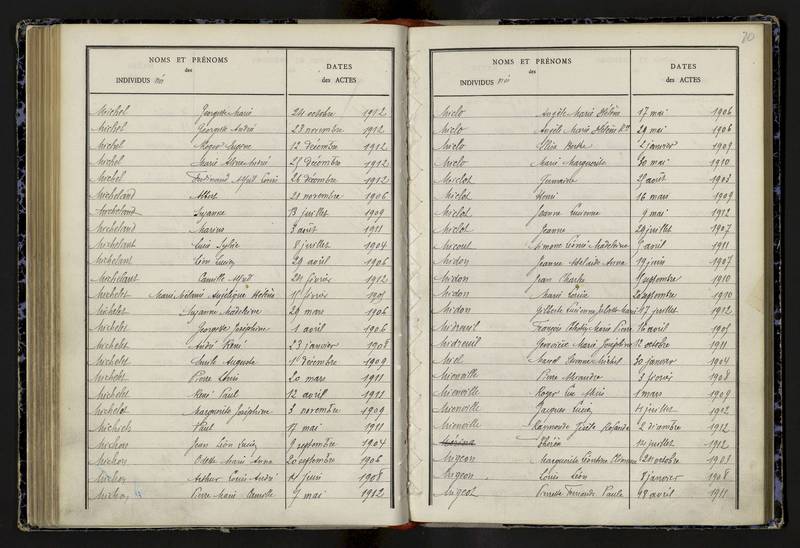 NOMS ET PRÉNOMS
des
INDIVIDUS nés
DATES
des ACTES
Michel Georgette Marie 24 octobre 1912
Michel Georgette André 28 novembre 1912
Michel Roger Eugène 12 décembre 1912
Michel Marie André 25 décembre 1912
Michel Ferdinand Alfred Louis 26 décembre 1912
Micheland Albert 21 novembre 1906
Micheland Suzanne 13 juillet 1909
Micheland Marius 3 août 1911
Michelant Sylvie 8 juillet 1904
Michelant Léon Lucien 29 avril 1906
Michelant Camille 24 février 1912
Michelet Marie Mélanie Angélique Hélène février 1905
Michelet Suzanne Madeleine 29 mars 1906
Michelet Georgette Joséphine 1 avril 1906
Michelet André René 23 janvier 1908
Michelet Auguste décembre 1909
Michelet Pierre Louis 20 mars 1911
Michelet René Paul 12 avril 1911
Michelet Marguerite Joséphine 3 novembre 1909
Michiels Paul 17 mai 1911
Michon Jean Léon Lucien 9 septembre 1904
Michon Odette Marie Anna 20 septembre 1906
Michon Arthur Louis André juin 1908
Michon Pierre Marie Camille mai 1912
70
NOMS ET PRÉNOMS
des
INDIVIDUS nés
DATES
des ACTES
Miclo Angèle Marie Hélène 17 mai 1906
Miclo Angèle Marie Hélène 29 mai 1906
Miclo Berthe 2 janvier 1909
Miclo Marie Marguerite 30 mai 1910
Miclot Germaine 25 août 1903
Miclot Henri 16 mars 1909
Miclot Jeanne Lucienne 9 mai 1912
Miclot Jeanne 29 juillet 1907
Micout Simone Louise Madeleine avril 1911
Midon Jeanne Adelaïde Anna 19 juin 1907
Midon Jean Charles septembre 1910
Midon Marie Louise 20 septembre 1910
Midon Gilberte Lucienne Juliette Marie 17 juillet 1912
Midreuil François Marie Pierre 16 avril 1905
Midreuil Geneviève Marie Joséphine 12 octobre 1911
Miel Marcel Etienne Michel 30 janvier 1904
Mienville Pierre Alexandre 3 février 1908
Mienville Roger mars 1909
Mienville Jacques Lucien juillet 1912
Mienville Raymonde Gisèle Rolande 2 décembre 1912
juillet 1912
Migeon Marguerite Léontine 24 octobre 1903
Migeon Louis Léon 8 janvier 1908
Migeot Pierrette Fernande Paule 18 avril 1911